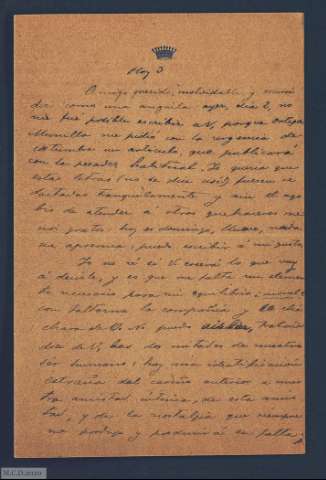 Hoy 3
Amigo querido inolvidable y escurri
dizo como una anguila: ayer, día 2, no
me fué posible escribir a V. porque Ortega
Munilla me pidió con la urgencia de
costumbre un artículo, que publicará
con la pesadez habitual. Yo quería que
estas letras (no se dice así) fuesen re
dactadas tranquilamente y sin el ago
bio de atender á otros quehaceres me
nos gratos: hoy es domingo, llueve, nada
me apremia; puedo escribir á mi gusto.
Yo no sé si V. creerá lo que voy
á decirle, y es que me falta un elemen
to necesario para mi equilibrio
con faltarme la compañía y la chá
chara de V. No puedo
de V. las dos mitades de nuestro
ser humano: hay una identificación
extraña del cariño anterior a nues
tra amistad íntima, de esta
y de la nostalgia que siempre
me produjo y producirá su falta
M.C.D. 2022